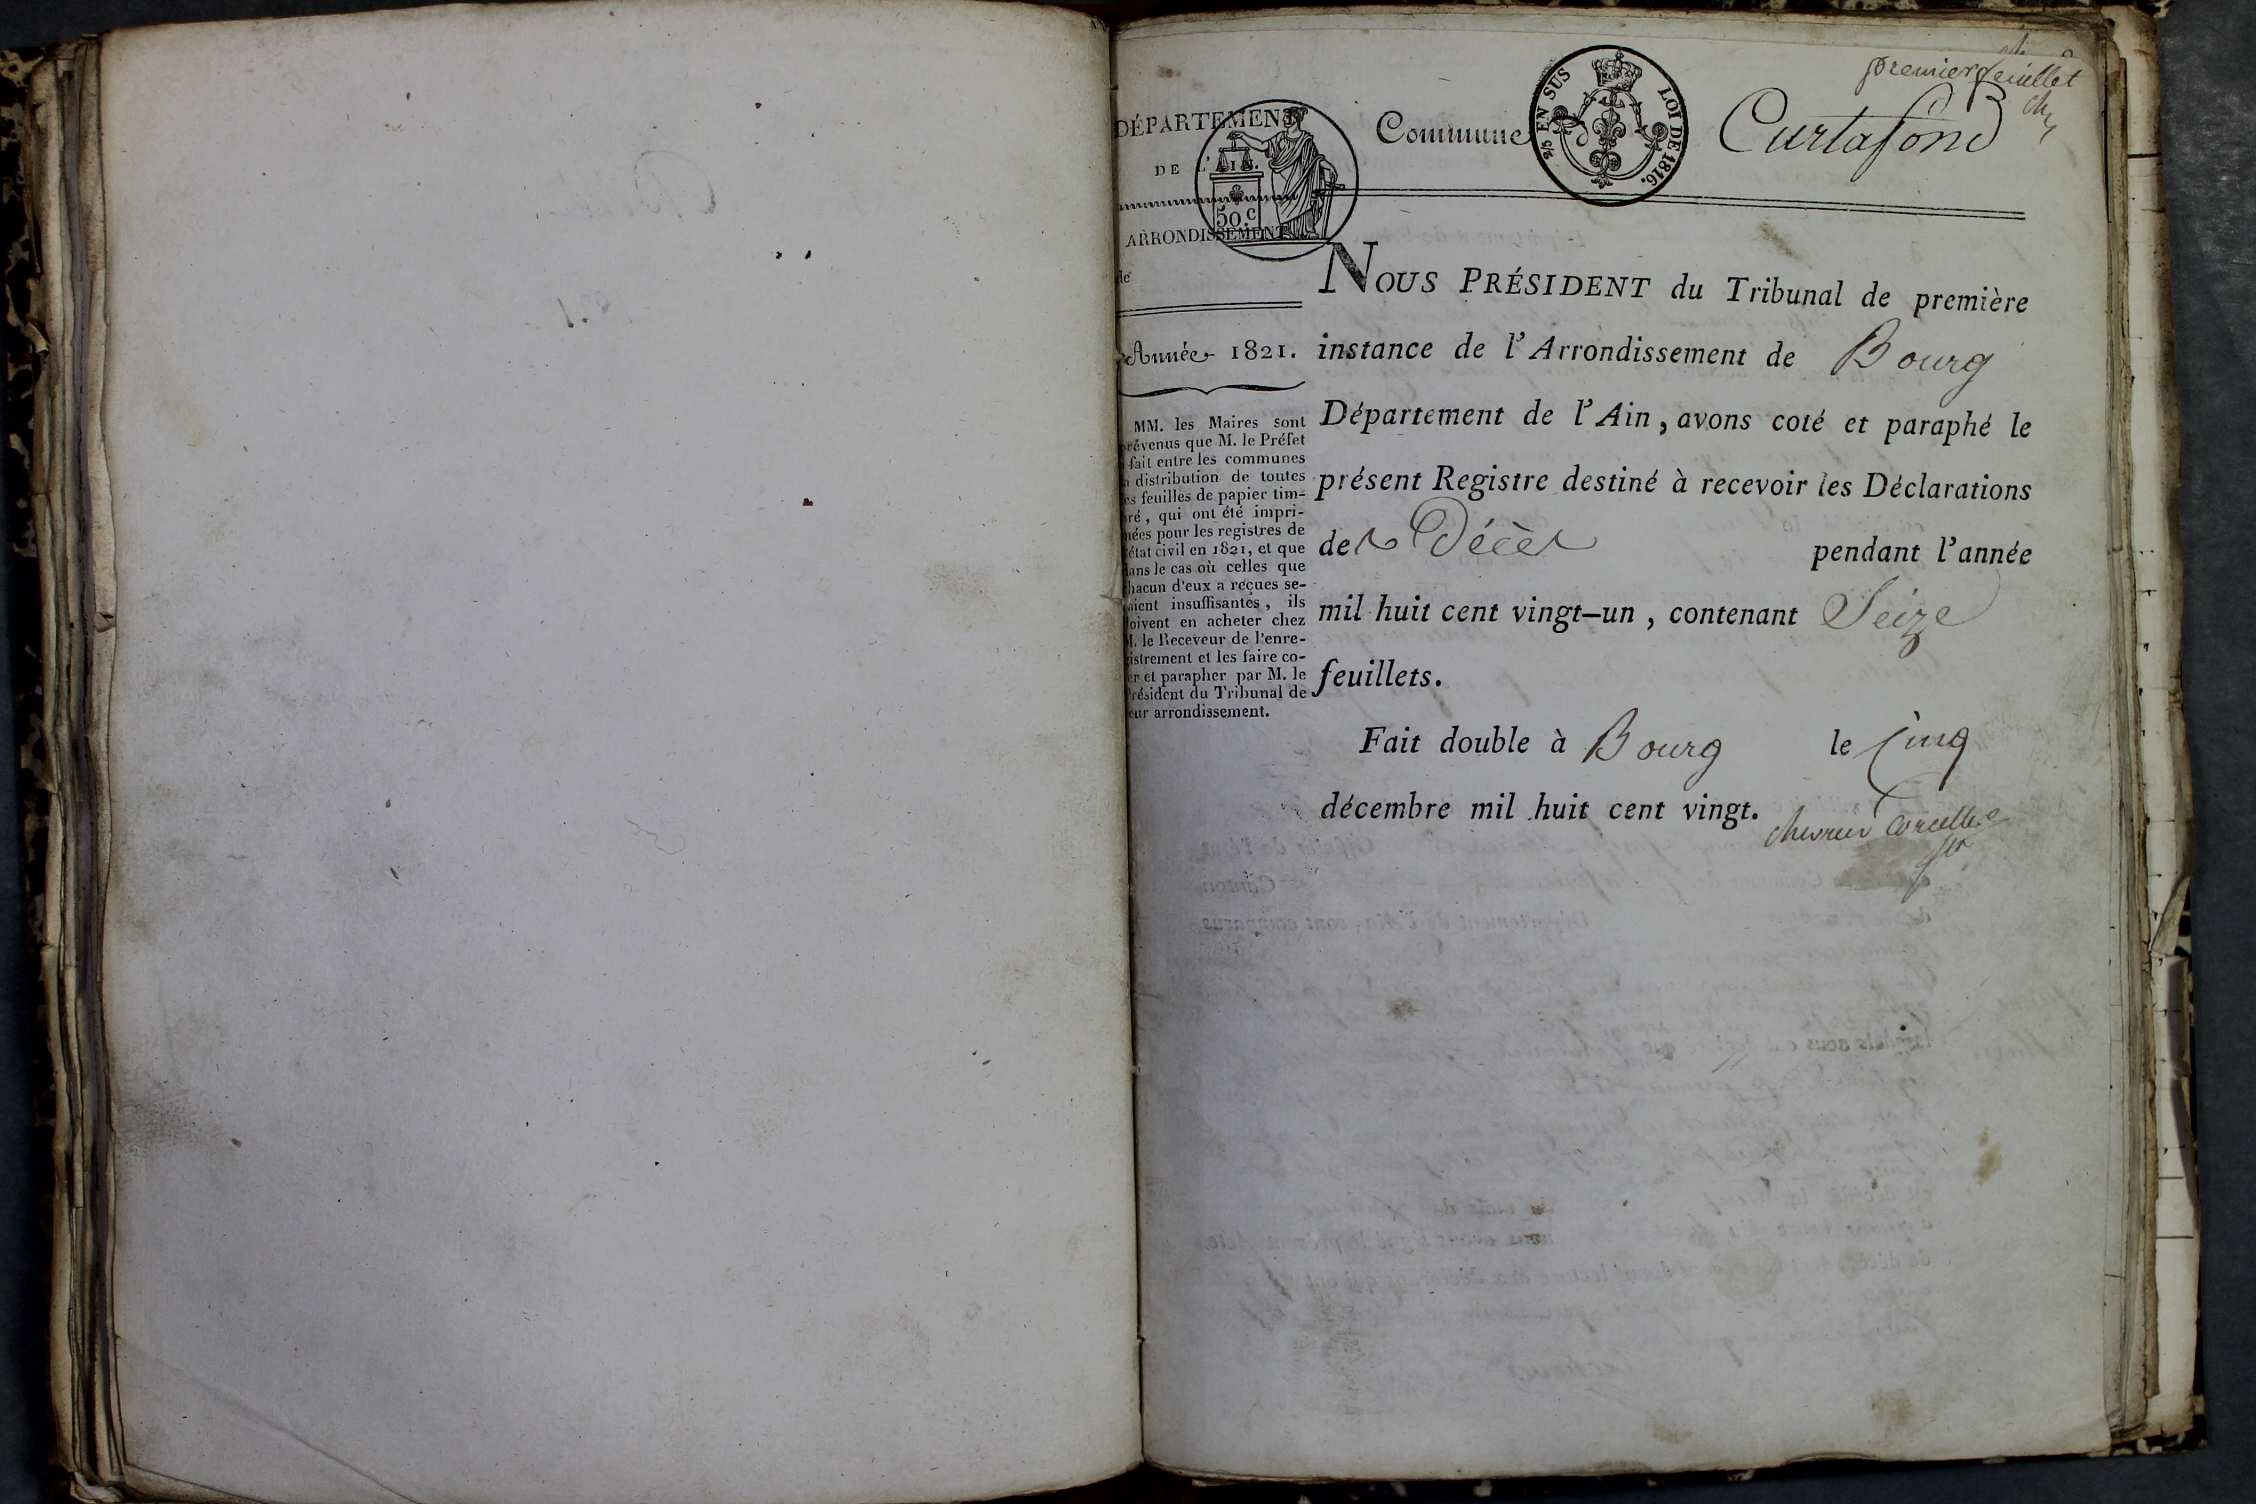 premier feuillet
DÉPARTEMENT
DE L'AIN.
50 c
ARRONDISSEMENT
de
Commune
2/5 EN SUS
LOI DE 1816.
Curtafond
Année 1821.
MM. les Maires sont
prévenus que M. le Préfet
fait entre les communes
distribution de toutes
feuilles de papier tim-
ré, qui ont été impri-
mées pour les registres de
état civil en 1821, et que
dans le cas où celles que
chacun d'eux a reçues se-
aient insuffisantes, ils
doivent en acheter chez
M. le Receveur de l'enre-
istrement et les faire co-
er et parapher par M. le
Président du Tribunal de
eur arrondissement.
NOUS PRÉSIDENT du Tribunal de première
instance de l'Arrondissement de Bourg
Département de l'Ain, avons coté et paraphé le
présent Registre destiné à recevoir les Déclarations
de Décès pendant l'année
mil huit cent vingt-un, contenant Seize
feuillets.
Fait double à Bourg le Cinq
décembre mil huit cent vingt.